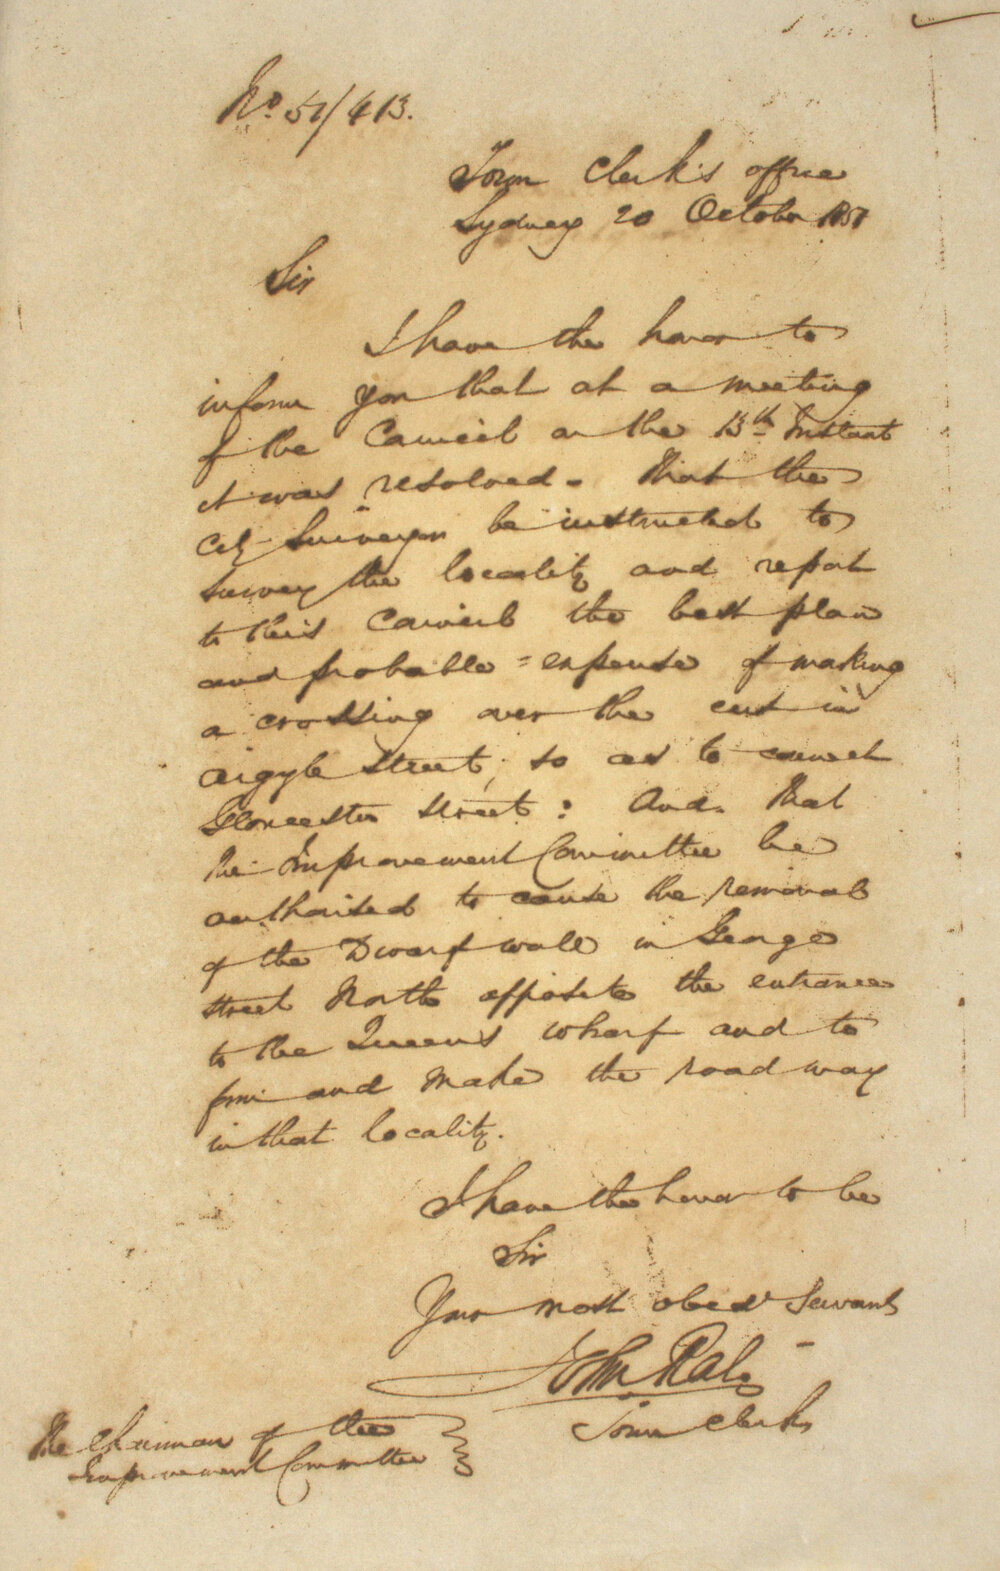 No. 51/413.
Town Clerk's office
Sydney 20 October 1851
Sir
I have the honor to
inform you that at a meeting
of the Council on the 13th Instant
it was resolved. That the
City Surveyor be instructed to
survey the locality and report
to this Council the best plan
and probable = expense of making
a crossing over the cut in
Argyle Street, so as to connect
Gloucester Street: And. That
the Improvement Committee be
authorised to cause the removal
of the Dwarf wall in George
street North opposite the entrance
to the Queen's wharf and to
form and make the road way
in that locality.
I have the honor to be
Sir
Your most obedt Servant
John Rae
Town Clerk
The Chairman of the
Improvement Committee